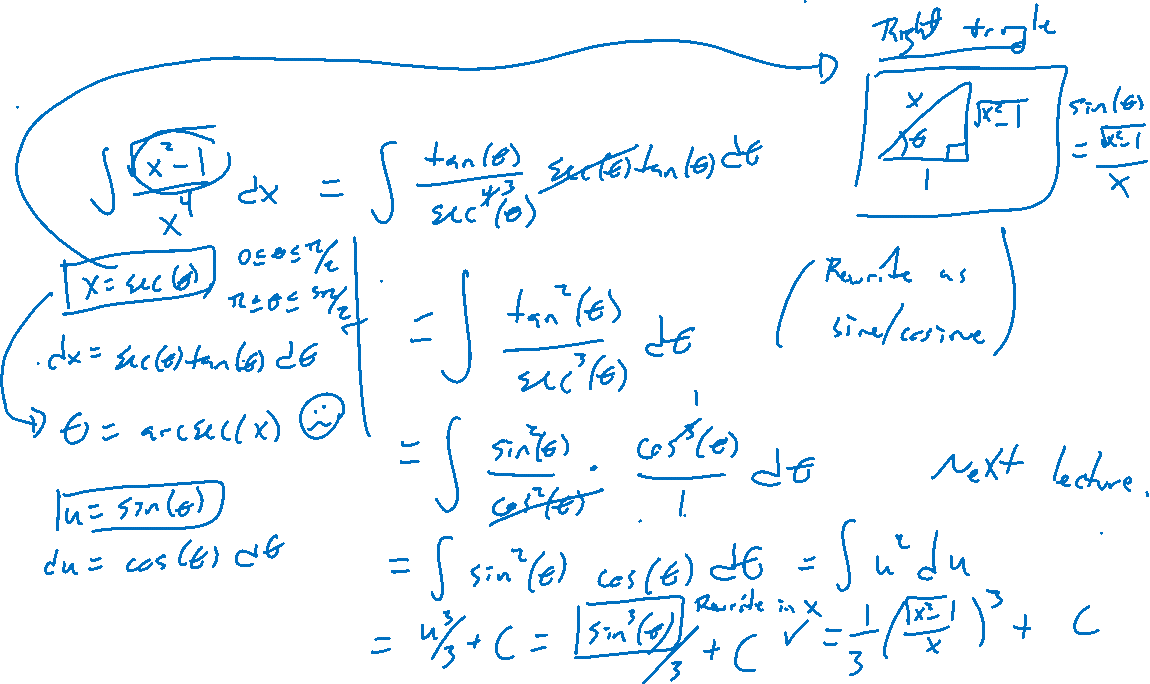 Right triangle
x θ √x²-1 1
sin(θ) = √x²-1 / x
∫ √x²-1 / x⁴ dx = ∫ tan(θ) / sec⁴³(θ) sec(θ)tan(θ) dθ
x = sec(θ) 0≤θ≤π/2
π≤θ≤3π/2
dx = sec(θ)tan(θ) dθ
θ = arcsec(x)
= ∫ tan²(θ) / sec³(θ) dθ
(Rewrite as
sine/cosine)
= ∫ sin²(θ) / cos²(θ) · cos³(θ) / 1 dθ
1
Next lecture.
u = sin(θ)
du = cos(θ) dθ
= ∫ sin²(θ) cos(θ) dθ = ∫ u² du
= u³/3 + C = sin³(θ)/3 + C ✓ = 1/3 (√x²-1 / x)³ + C
Rewrite in x